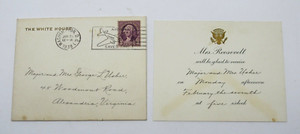 THE WHITE HOUSE
Major and Mrs. George L. Usher
45 Woodmont Road,
Alexandria, Virginia
Mrs. Roosevelt
will be glad to receive
Major and Mrs. Usher
on
Monday afternoon
February the seventh
at five o'clock